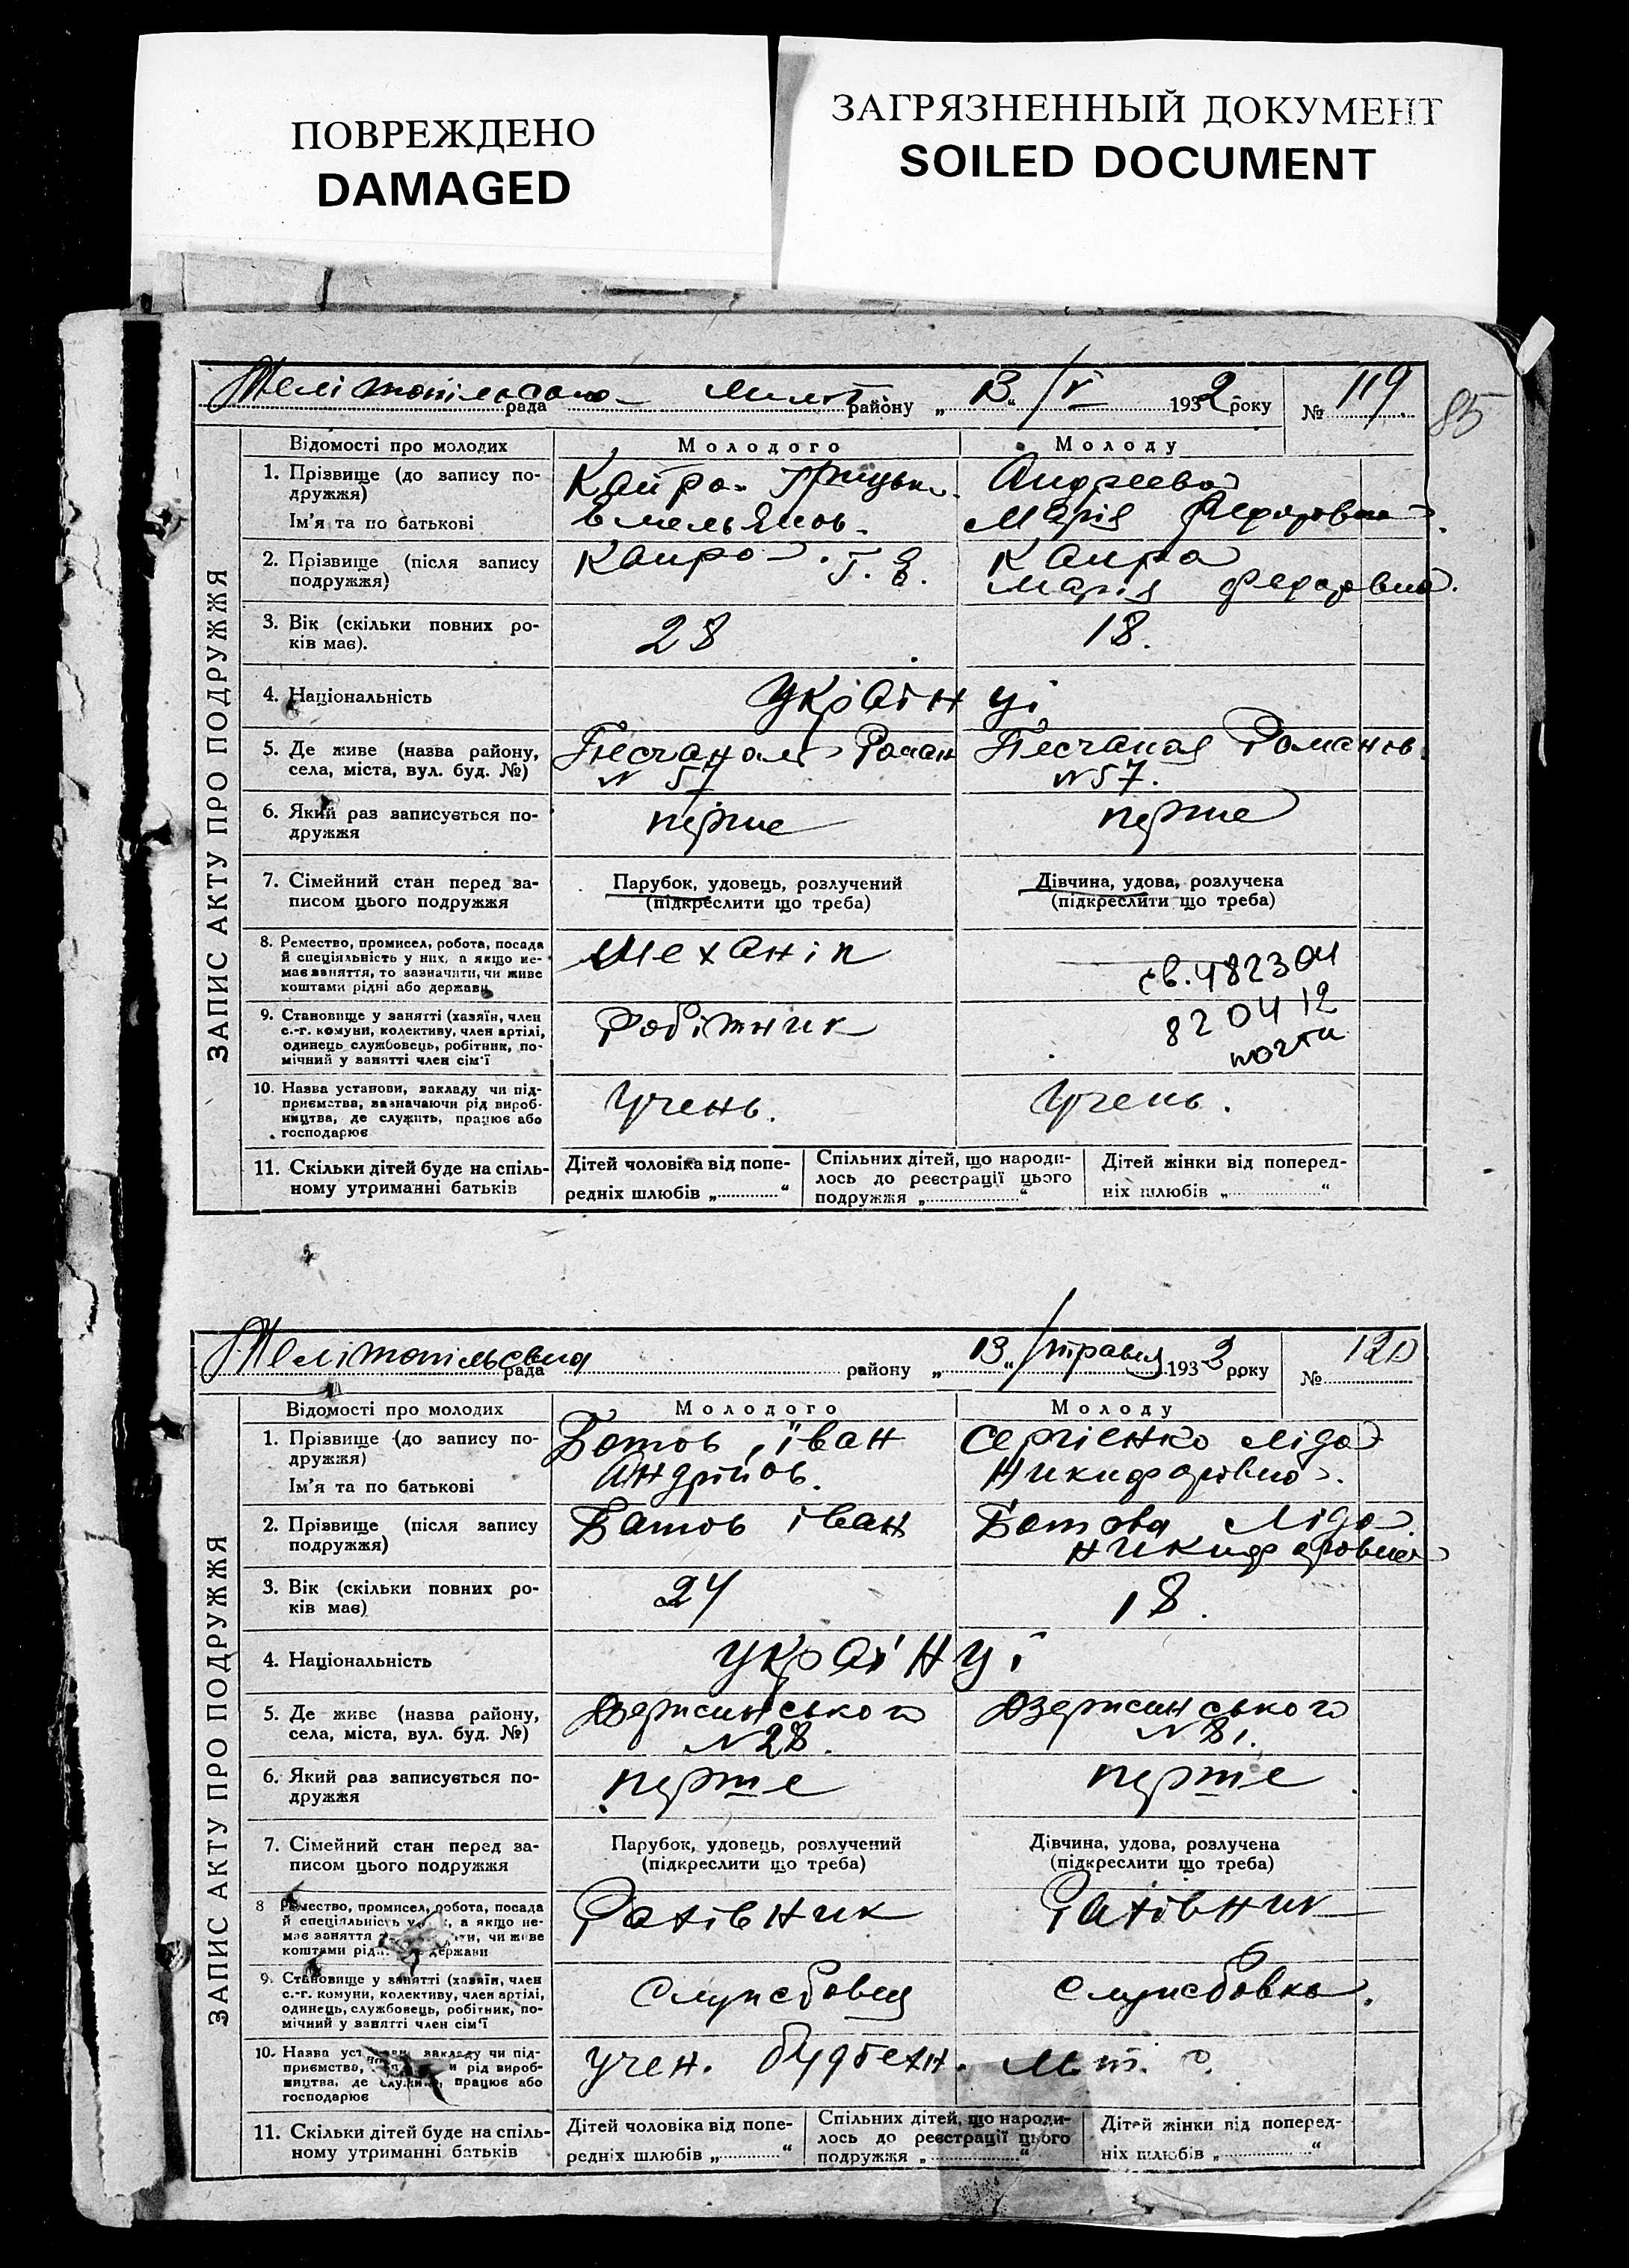 ПОВРЕЖДЕНО
DAMAGED
ЗАГРЯЗНЕННЫЙ ДОКУМЕНТ
SOILED DOCUMENT
85
рада району „13“ /V 1932 року № 119
ЗАПИС АКТУ ПРО ПОДРУЖЖЯ
Відомості про молодих Молодого Молоду
1. Прізвище (до запису по-
дружжя)
Ім'я та по батькові
Кайра Грицьк. Андреева
Емельянов. Марія Федоровна.
2. Прізвище (після запису
подружжя)
Каира Г. Е. Каира
Марія Федоровна.
3. Вік (скільки повних ро-
ків має).
28 18.
4. Національність
Украінці
5. Де живе (назва району,
села, міста, вул. буд. №)
Песчаная Роман Песчаная Романов
№ 57 №57.
6. Який раз записується по-
дружжя
перше перше
7. Сімейний стан перед за-
писом цього подружжя
Парубок, удовець, розлучений
(підкреслити що треба)
Дівчина, удова, розлучена
(підкреслити що треба)
8. Ремество, промисел, робота, посада
й спеціяльність у них, а якщо не-
має заняття, то зазначити, чи живе
коштами рідні або держави
Механік
св. 482304
820412
почта
9. Становище у занятті (хазяїн, член
с.-г. комуни, колективу, член артілі,
одинець, службовець, робітник, по-
мічний у занятті член сім'ї
Робітник
10. Назва установи, закладу чи під-
приємства, зазначаючи рід вироб-
ництва, де служить, працює або
господарює
Учень. Учень.
11. Скільки дітей буде на спіль-
ному утриманні батьків
Дітей чоловіка від попе-
редніх шлюбів „ “
Спільних дітей, що народи-
лось до реєстрації цього
подружжя „ “
Дітей жінки від поперед-
ніх шлюбів „ “
Мелітопільська рада району „13“ /травня 1932 року № 120
ЗАПИС АКТУ ПРО ПОДРУЖЖЯ
Відомості про молодих Молодого Молоду
1. Прізвище (до запису по-
дружжя)
Ім'я та по батькові
Ботов, іван Сергієнко Ліда
Андрійов. Никифоровна.
2. Прізвище (після запису
подружжя)
Ботов іван Ботова Ліда
Никифоровна
3. Вік (скільки повних ро-
ків має)
24 18.
4. Національність
українці
5. Де живе (назва району,
села, міста, вул. буд. №)
Дзержинського Дзержинського
№28. № 81.
6. Який раз записується по-
дружжя
перше перше
7. Сімейний стан перед за-
писом цього подружжя
Парубок, удовець, розлучений
(підкреслити що треба)
Дівчина, удова, розлучена
(підкреслити що треба)
8 Ремество, промисел, робота, посада
й спеціяльність у них, а якщо не-
має заняття чи живе
коштами держави
Рахівник Рахівник
9. Становище у занятті (хазяїн, член
с.-г. комуни, колективу, член артілі,
одинець, службовець, робітник, по-
мічний у занятті член сім'ї
Службовец Службовка.
10. Назва закладу чи під-
приємства, рід вироб-
ництва, де служить, працює або
господарює
учен. будтехн.
11. Скільки дітей буде на спіль-
ному утриманні батьків
Дітей чоловіка від попе-
редніх шлюбів „ “
Спільних дітей, що народи-
лось до реєстрації цього
подружжя „ “
Дітей жінки від поперед-
ніх шлюбів „ “